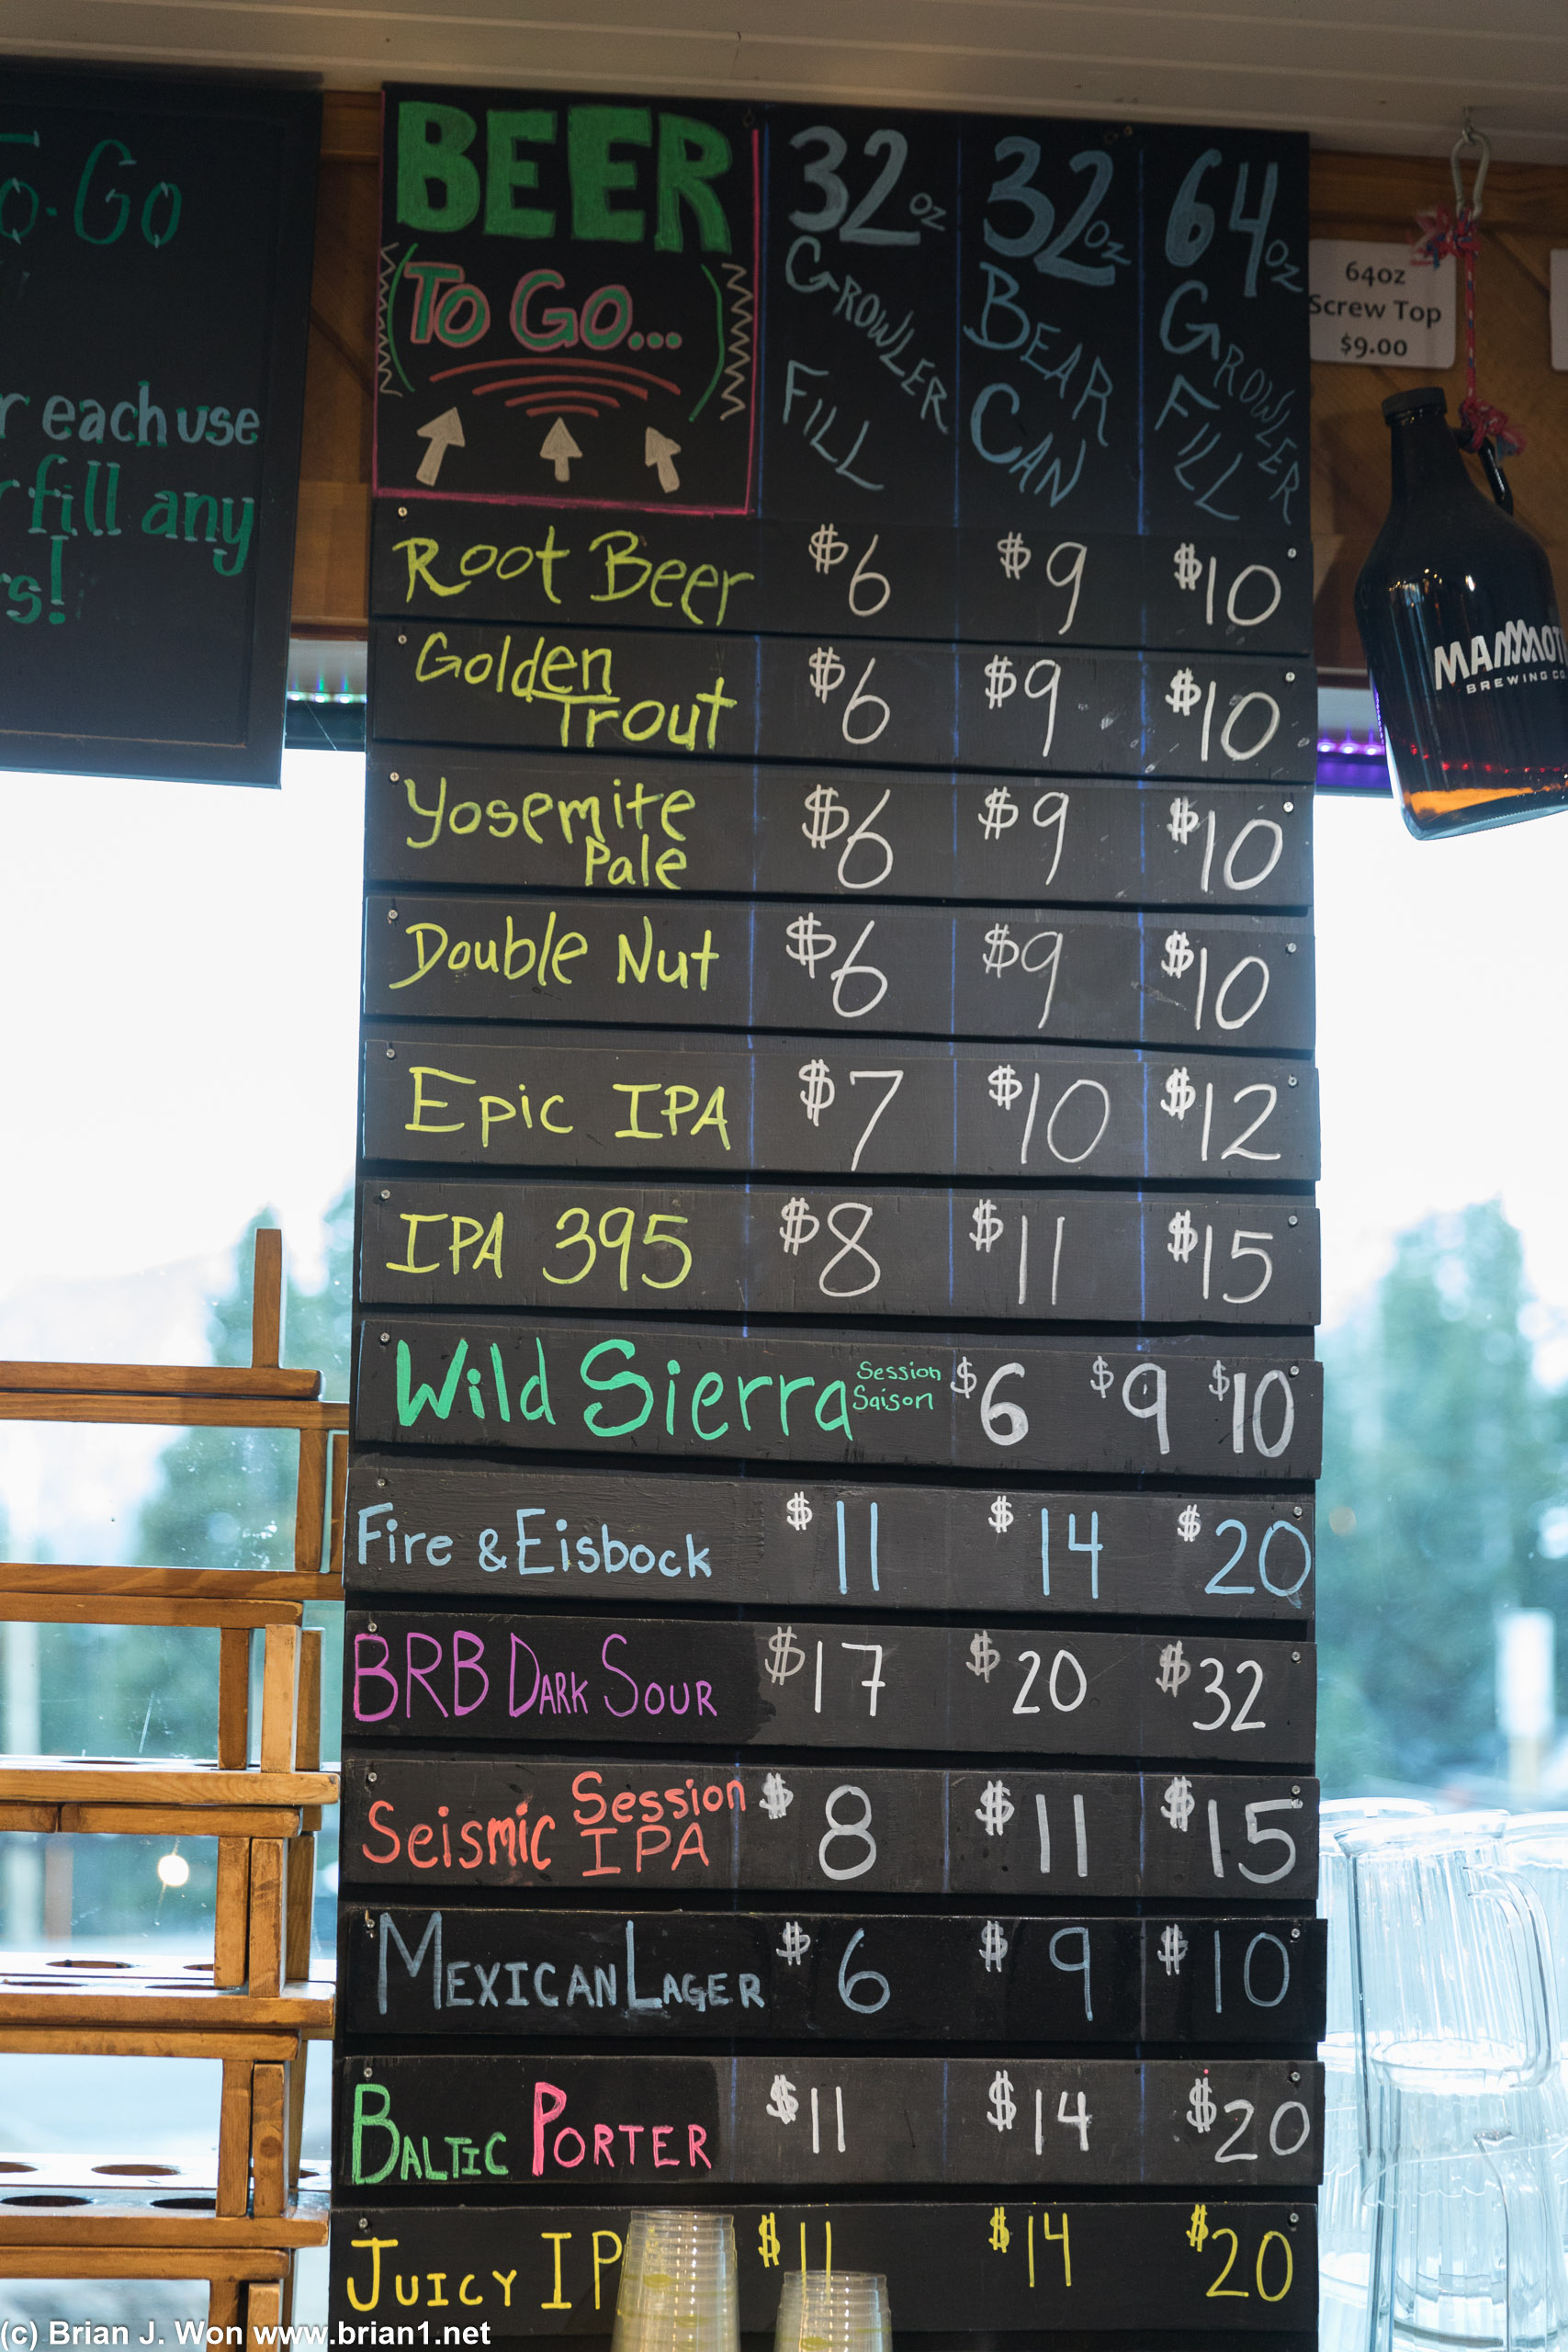 o-Go
r each use
fill any
s!
BEER
(To Go...)
32oz
GROWLER
FILL
32oz
BEAR
CAN
64oz
GROWLER
FILL
64oz
Screw Top
$9.00
MAMMOT
BREWING CO
Root Beer $6 $9 $10
Golden
Trout $6 $9 $10
Yosemite
Pale $6 $9 $10
Double Nut $6 $9 $10
Epic IPA $7 $10 $12
IPA 395 $8 $11 $15
Wild Sierra Session
Saison $6 $9 $10
Fire & Eisbock $11 $14 $20
BRB DARK SOUR $17 $20 $32
Seismic Session
IPA $8 $11 $15
MEXICAN LAGER $6 $9 $10
BALTIC PORTER $11 $14 $20
JUICY IP $11 $14 $20
(c) Brian J. Won www.brian1.net